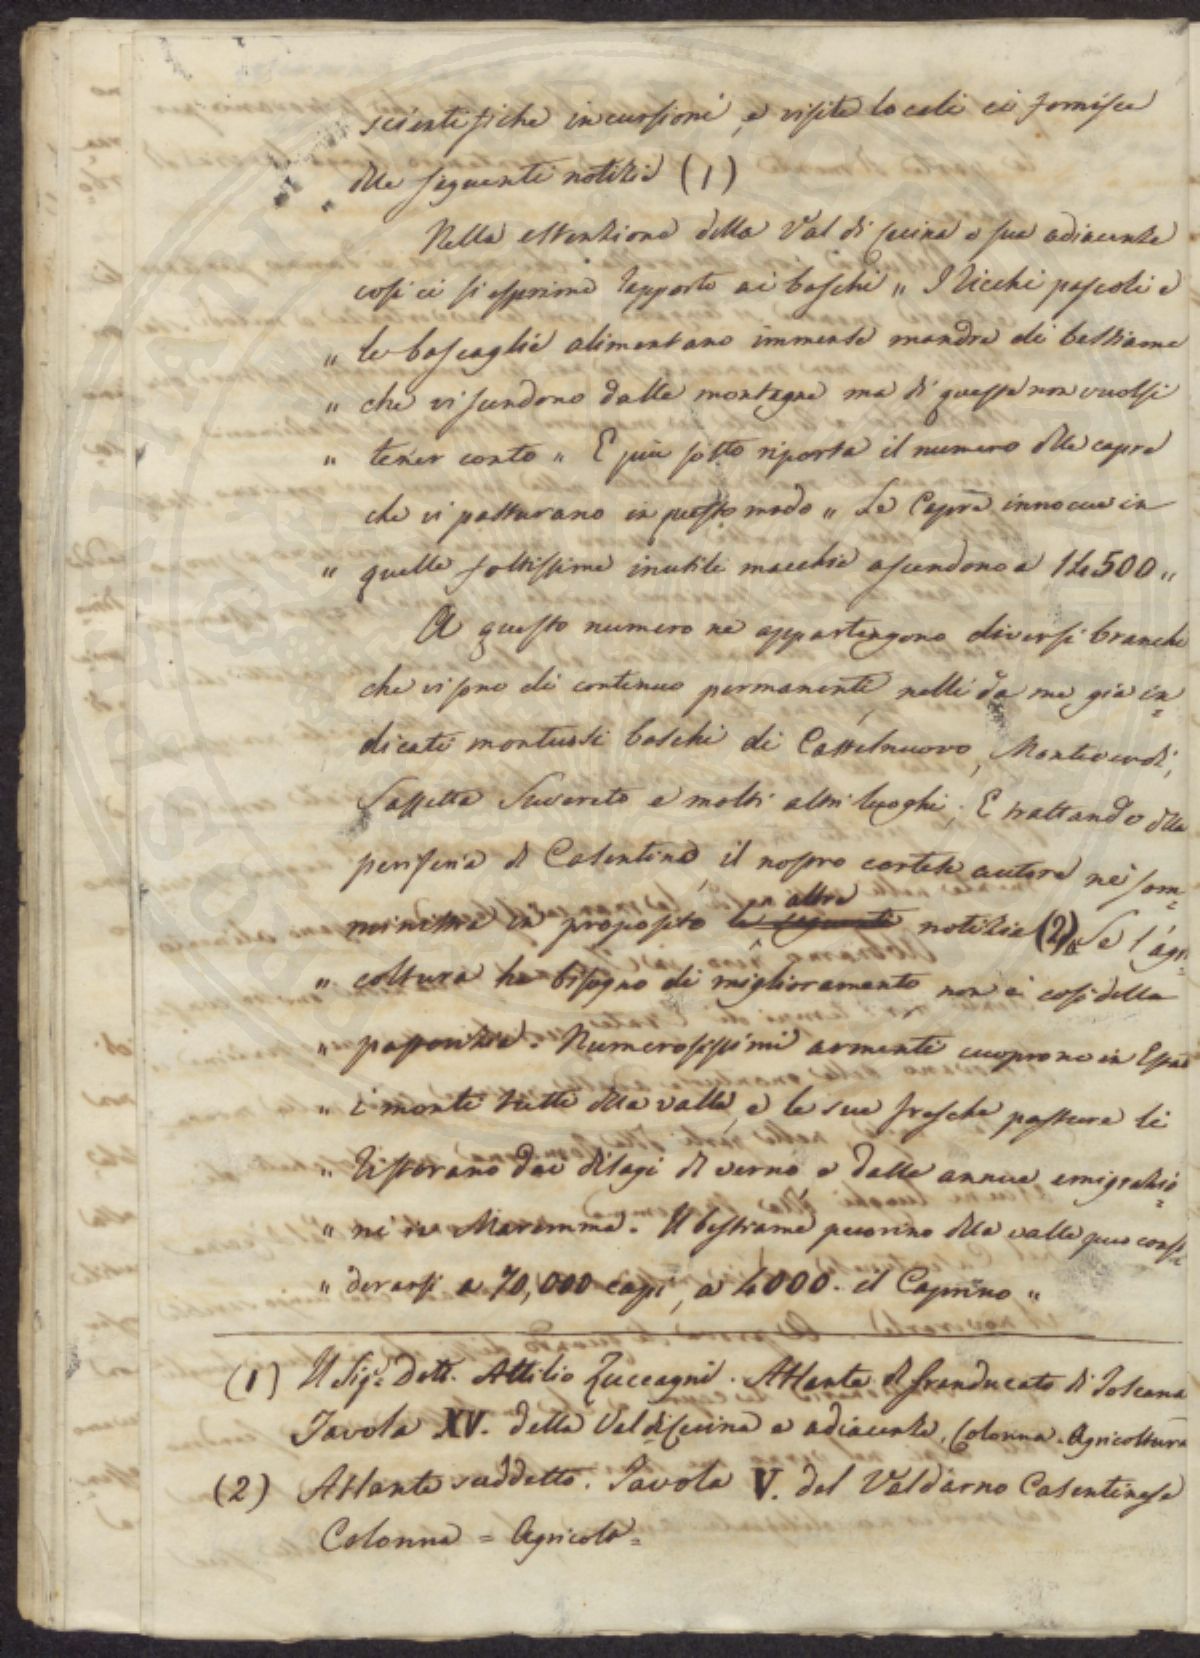 scientifiche incursioni, e visite locali ci fornisce
dlle seguenti notizie (1)
Nella estenzione della Val di Cecina e sue adiacenze
così ci si esprime rapporto ai boschi „ I Ricchi pascoli e
„ le boscaglie alimentano immense mandre di bestiame
„ che vi scendono dalle montagne ma di queste non vuolsi
„ tener conto „ E più sotto riporta il numero dlle capre
che vi pasturano in questo modo „ Le Capre innocue in
„ quelle foltissime inutili macchie ascendono a 14500 „
A questo numero ne appartengono diversi branchi
che vi sono di continuo permanenti nelli da me già in=
dicati montuosi boschi di Castelnuovo, Monteverdi,
Sassetta Suvereto e molti altri luoghi. E trattando dlla
periferia di Casentino, il nostro cortese autore ne som=
ministra in proposito le seguenti un altra notizia (2) „ Se l'agri=
„ coltura ha bisogno di miglioramento non è così della
„ pastorizia. Numerosissimi armenti cuoprono in Estate
„ i monti tutti dlla valle, e le sue fresche pasture li
„ ristorano dai disagi di verno, e dalle annue emigrazio=
„ ni in Maremma. Il bestiame pecorino dlla valle può consi=
„ derarsi a 70,000 capi, a 4000. il Caprino „
(1) Il Sig.r Dott. Attilio Zuccagni. Atlante dl Granducato di Toscana
Tavola XV. della Val di Cecina e adiacenze, Colonna. Agricoltura
(2) Atlante suddetto. Tavola V. del Valdarno Casentinese
Colonna = Agricola =